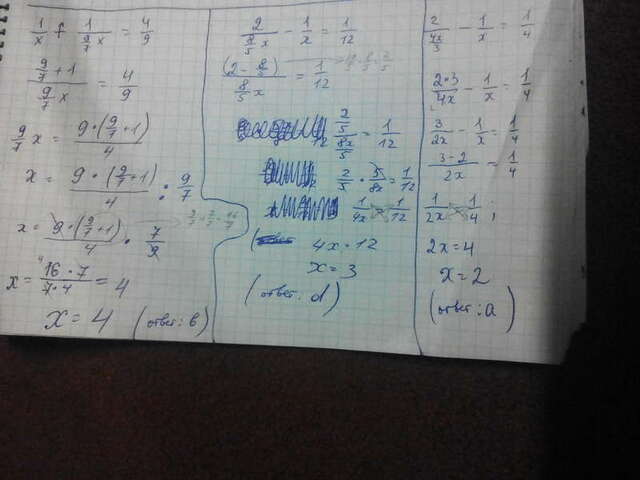 1/x + 1/(9/7 x) = 4/9
(9/7 + 1)/(9/7 x) = 4/9
9/7 x = 9·(9/7+1)/4
x = 9·(9/7+1)/4 : 9/7
x = 9·(9/7+1)/4 · 7/9
x = 16·7/7·4 = 4
x = 4 (ответ: в)
2/(8/5 x) - 1/x = 1/12
(2 - 8/5)/(8/5 x) = 1/12
(2/5)/(8x/5) = 1/12
2/5 · 5/8x = 1/12
1/4x 1/12
4x = 12
x = 3
(ответ: d)
2/(4x/3) - 1/x = 1/4
2·3/4x - 1/x = 1/4
3/2x - 1/x = 1/4
3-2/2x = 1/4
1/2x 1/4 ;
2x = 4
x = 2
(ответ: а)